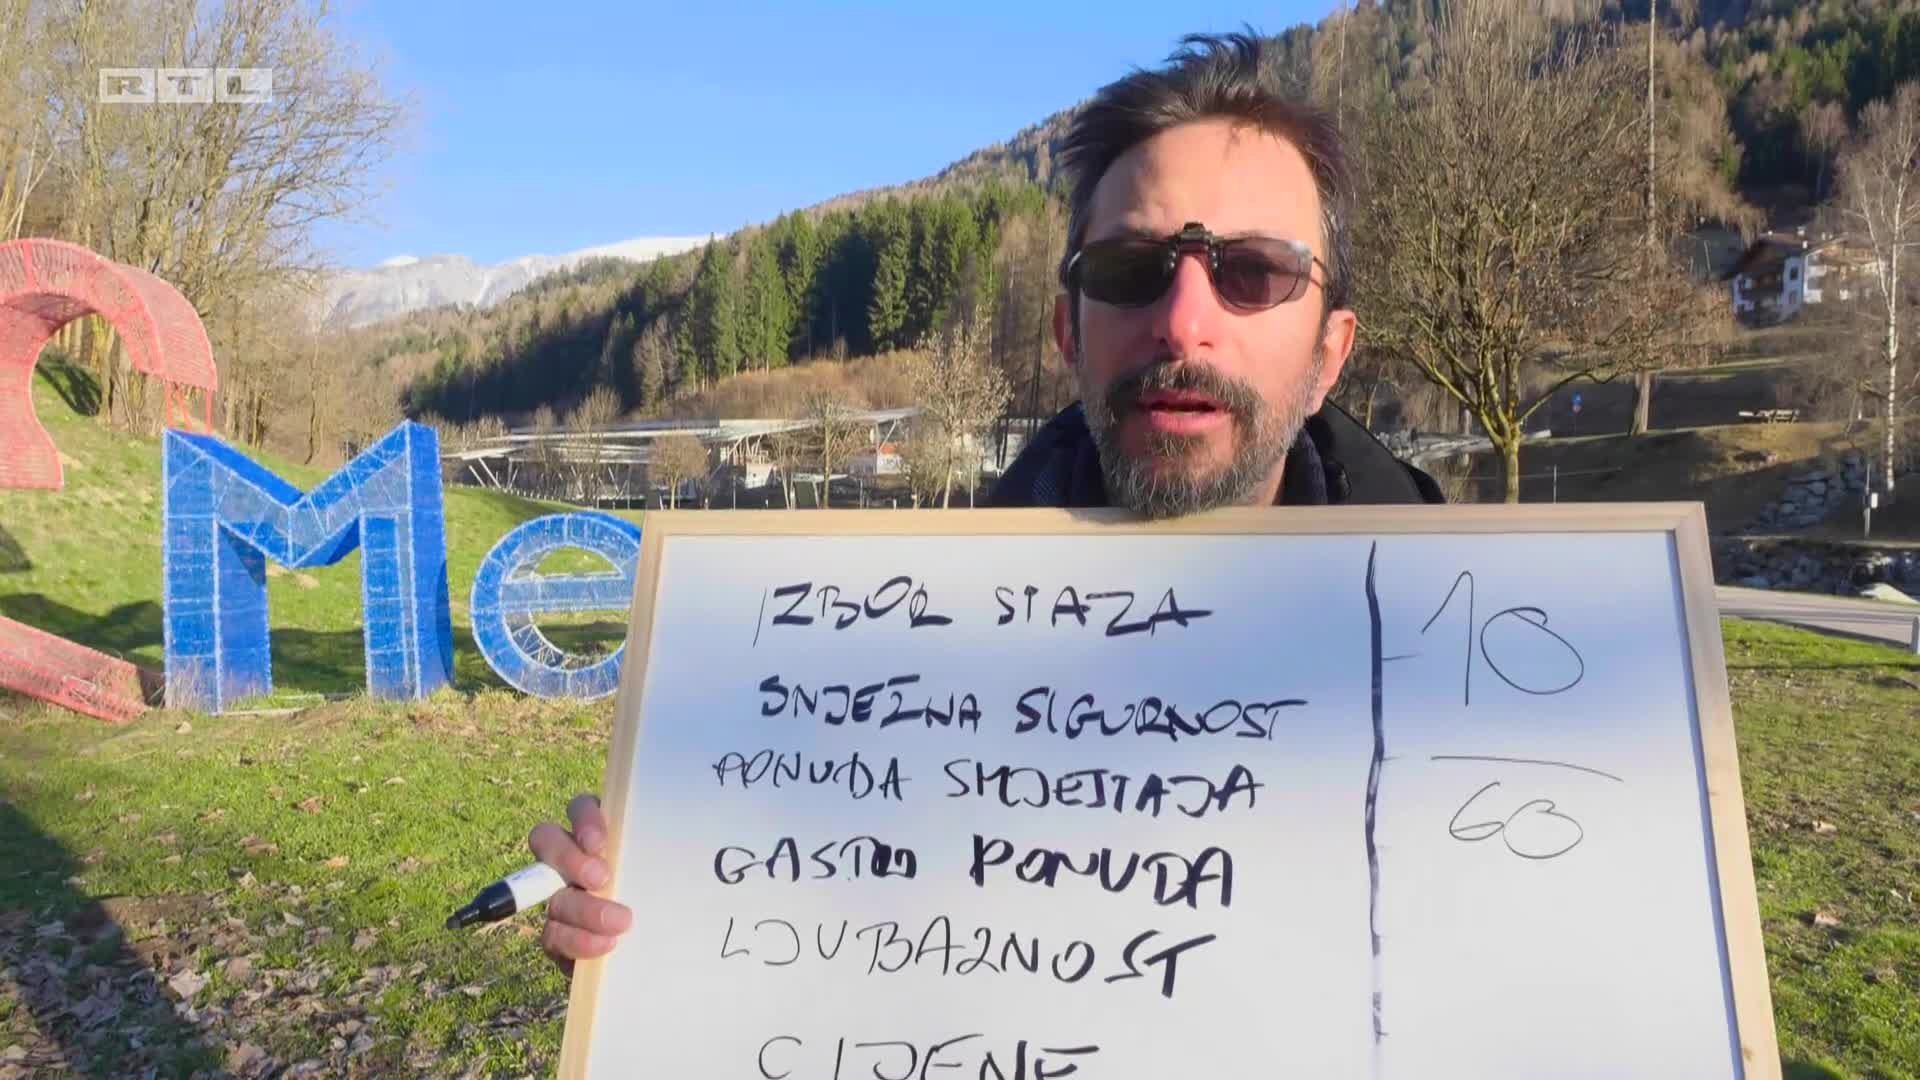 RTL
Me
IZBOR STAZA
SNJEŽNA SIGURNOST
PONUDA SMJEŠTAJA
GASTRO PONUDA
LJUBAZNOST
CIJENE
10
60